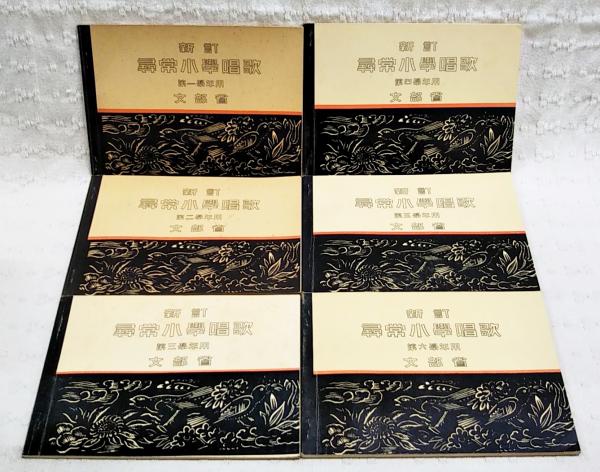 新訂
尋常小學唱歌
第一學年用
文部省
新訂
尋常小學唱歌
第四學年用
文部省
新訂
尋常小學唱歌
第二學年用
文部省
新訂
尋常小學唱歌
第五學年用
文部省
新訂
尋常小學唱歌
第三學年用
文部省
新訂
尋常小學唱歌
第六學年用
文部省